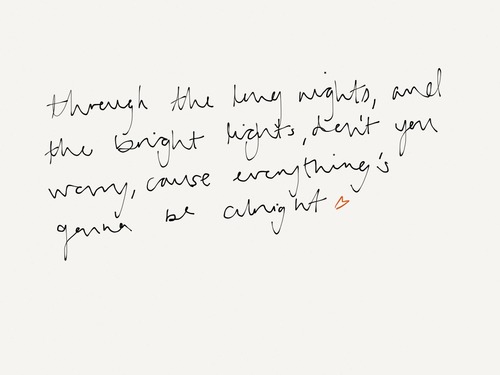 through the long nights, and
the bright lights, don't you
worry, cause everything's
gonna be alright